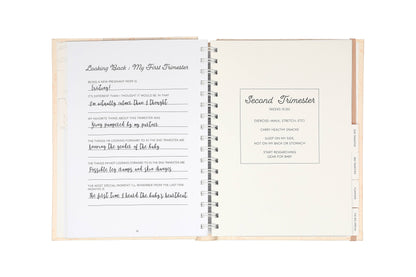 Looking Back : My First Trimester
BEING A NEW PREGNANT MOM IS
Exciting!
IT'S DIFFERENT THAN I THOUGHT IT WOULD BE IN THAT
I'm actually calmer than I thought
MY FAVORITE THING ABOUT THIS TRIMESTER WAS
being pampered by my partner
THE THINGS I'M LOOKING FORWARD TO IN THE 2ND TRIMESTER ARE
Knowing the gender of the baby
THE THINGS I'M NOT LOOKING FORWARD TO IN THE 2ND TRIMESTER ARE
Possible leg cramps and skin changes
THE MOST SPECIAL MOMENT I'LL REMEMBER FROM THE LAST FEW
MONTHS IS
The first time I heard the baby's heartbeat.
Second Trimester
EXERCISE—WALK, STRETCH, ETC!
CARRY HEALTHY SNACKS
SLEEP ON MY SIDE,
NOT ON MY BACK OR STOMACH
START RESEARCHING
GEAR FOR BABY